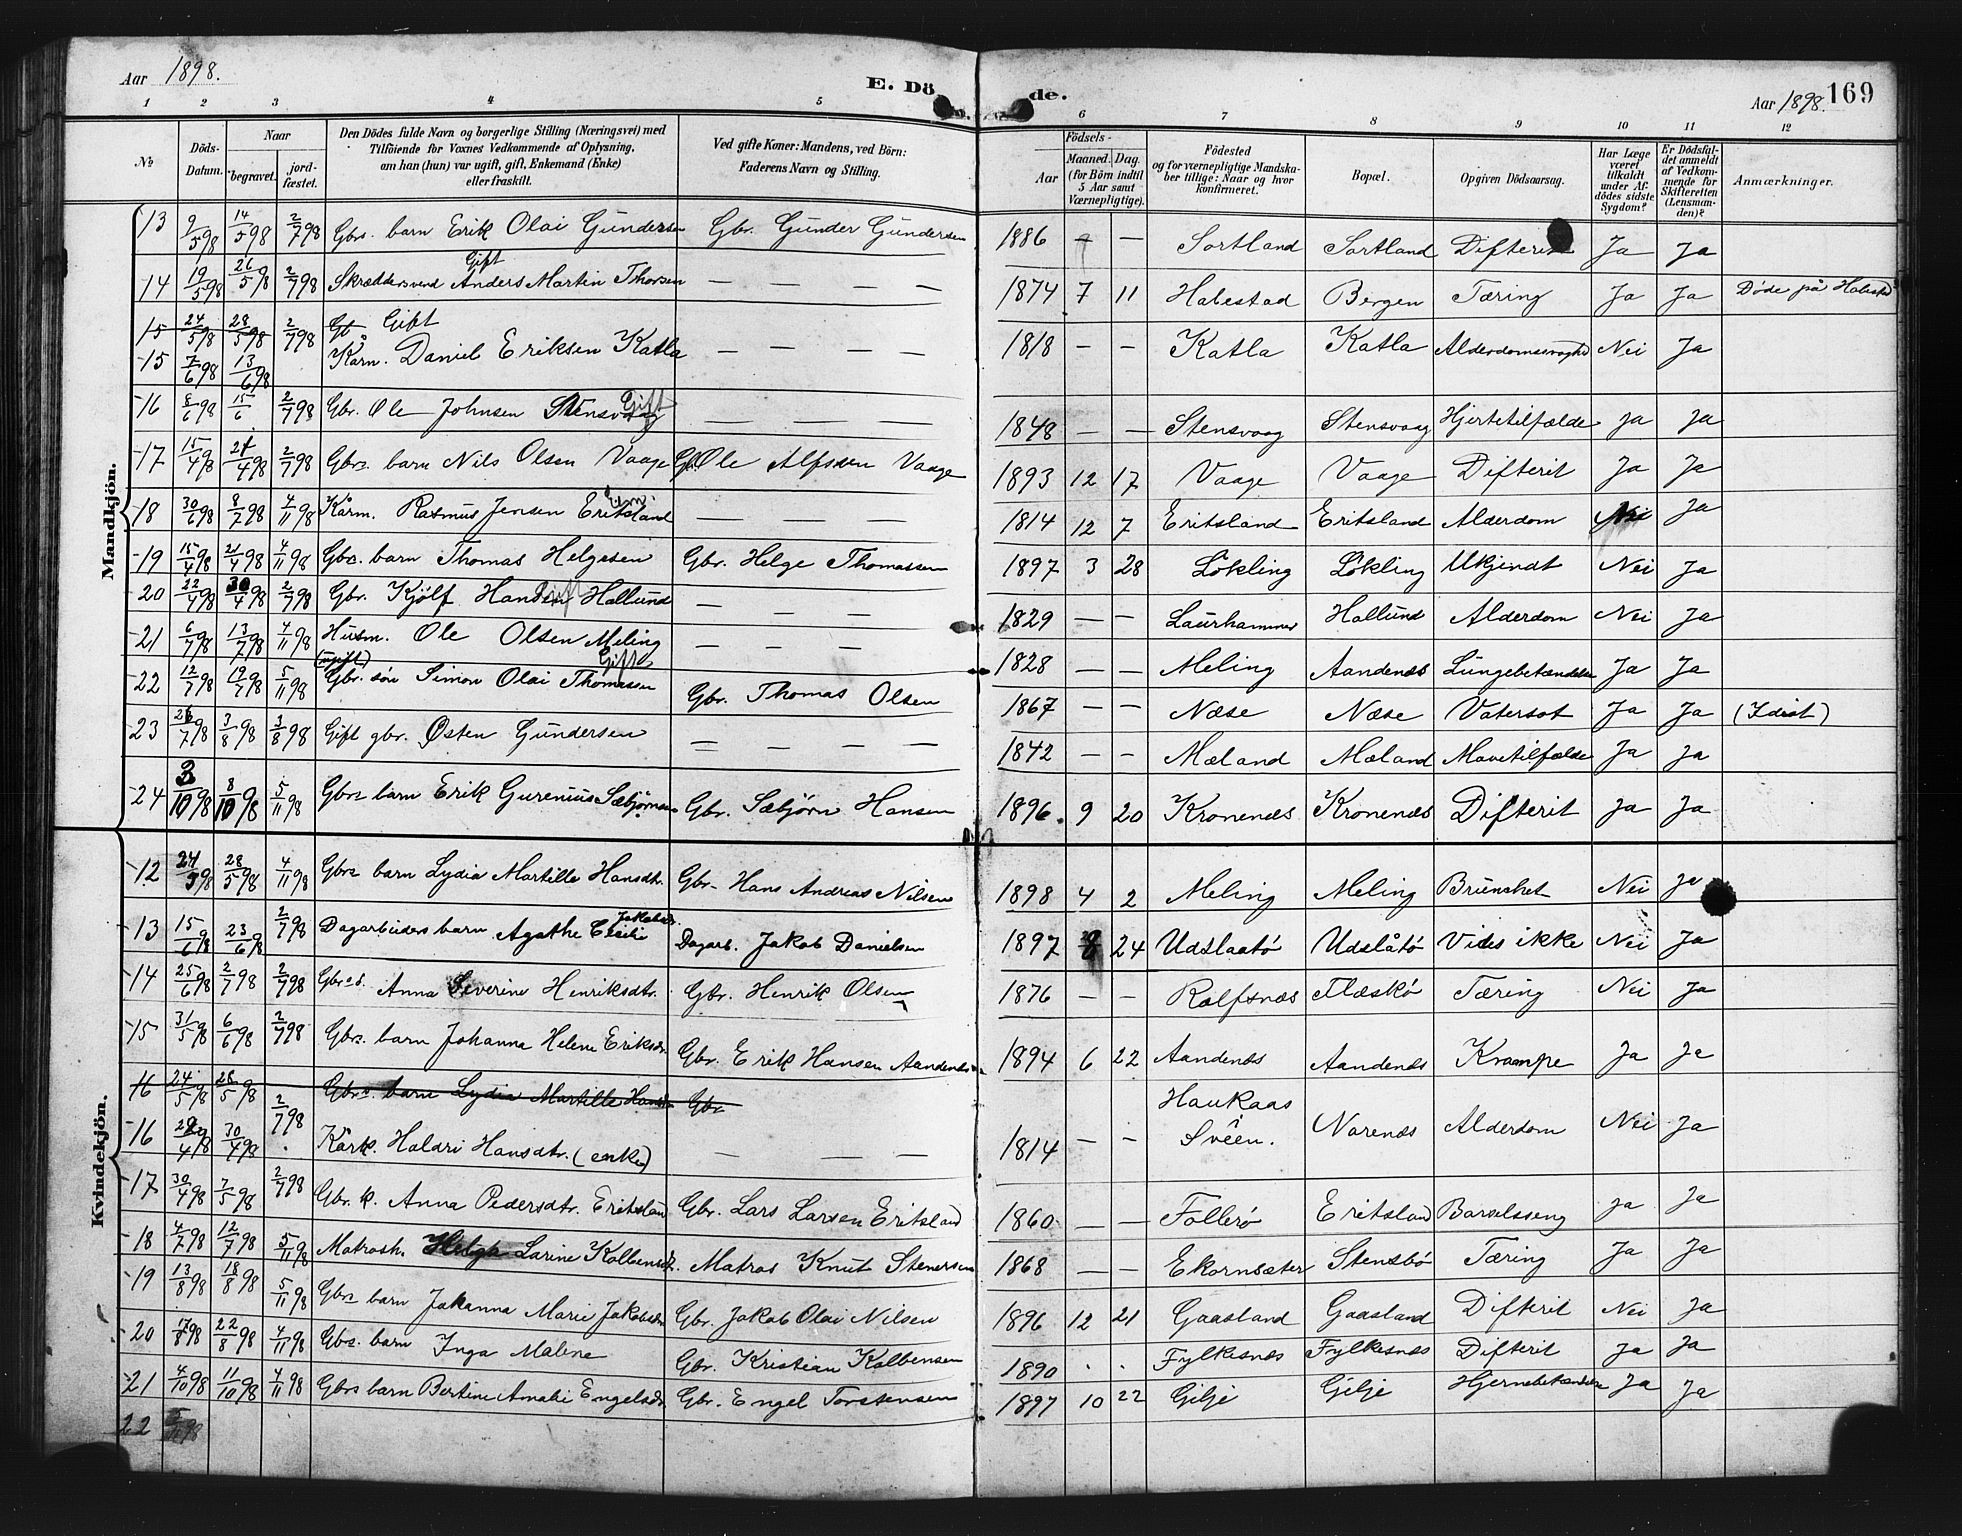 Aar 1898. E. Dö de. Aar 1898. 169
1 2 3 4 5 6 7 8 9 10 11 12
No Döds-Datum. Naar begravet. jordfæstet. Den Dödes fulde Navn og borgerlige Stilling (Næringsvei) med Tilföiende for Voxnes Vedkommende af Oplysning, om han (hun) var ugift, gift, Enkemand (Enke) eller fraskilt. Ved gifte Koner: Mandens, ved Börn: Faderens Navn og Stilling. Födsels- Aar Maaned. Dag. (for Börn indtil 5 Aar samt Værnepligtige). Födested og for værnepligtige Mandskaber tillige: Naar og hvor konfirmeret. Bopæl. Opgiven Dödsaarsag. Har Læge været tilkaldt under Afdödes sidste Sygdom? Er Dödsfaldet anmeldt af Vedkommende for Skifteretten (Lensmanden)? Anmærkninger.
Mandkjön.
13 9/5 98 14/5 98 2/7 98 Gbrs. barn Erik Olai Gundersen Gbr. Gunder Gundersen 1886 – – Sortland Sortland Difterit Ja Ja
14 19/5 98 26/5 98 2/7 98 Skræddersvend Gift Anders Martin Thorsen — — — — 1874 7 11 Habestad Bergen Tæring Ja Ja Døde på Habestad
15 24/5 98 28/5 98 2/7 98 Gb Gift
15 7/6 98 13/6 98 Kårm. Daniel Eriksen Katla — — — — 1818 – – Katla Katla Alderdomssvaghd Nei Ja
16 8/6 98 15/6 2/7 98 Gbr. Ole Johnsen Stensvaag Gift — — — — 1848 – – Stensvaag Stensvaag Hjertetilfælde Ja Ja
17 15/4 98 21/4 98 2/7 98 Gbrs. barn Nils Olsen Vaage Gb. Ole Alfsøen Vaage 1893 12 17 Vaage Vaage Difterit Ja Ja
18 30/6 98 8/7 98 4/11 98 Kårm. Rasmus Jensen Eritsland — — — — 1814 12 7 Eritsland Eritsland Alderdom Nei Ja
19 15/4 98 21/4 98 4/11 98 Gbrs. barn Thomas Helgesen Gbr. Helge Thomassen 1897 3 28 Løkling Løkling Ukjendt Nei Ja
20 22/4 98 30/4 98 2/7 98 Gbr. Kjølf Hansen Gift Hallund — — — — 1829 – – Laurhammer Hallund Alderdom Nei Ja
21 6/7 98 13/7 98 4/11 98 Husm. Ole Olsen Meling Gift — — — 1828 – – Meling Aandenæs Lungebetændelse Ja Ja
22 12/7 98 19/7 98 5/11 98 (ugift) Gbr. søn Simon Olai Thomassen Gbr. Thomas Olsen 1867 – – Næse Næse Vatersot Ja Ja (Idiot)
23 26/7 98 3/8 98 3/8 98 Gift gbr. Østen Gundersen — — — — 1842 – – Mæland Mæland Mavetilfælde Ja Ja
24 3/10 98 8/10 98 5/11 98 Gbrs barn Erik Gurenius Sæbjørnsen Gbr. Sæbjørn Hansen 1896. 9 20 Kronenæs Kronenæs Difterit Ja Ja
Kvindekjön.
12 24/5 98 28/5 98 4/11 98 Gbrs barn Lydia Martille Hansdtr. Gbr. Hans Andreas Nilsen 1898 4 2 Meling Meling Brunchet Nei Ja
13 15/6 98 23/6 98 2/7 98 Dagarbeiders barn Agathe Cecilie Jakobsdr. Dagarb. Jakob Danielsen 1897 8 24 Udslaatø Udslåtø Vides ikke Nei Ja
14 25/6 98 2/7 98 2/7 98 Gbrs d. Anna Severine Henriksdtr. Gbr. Henrik Olsen 1876 – – Rolfsnæs Flæskø Tæring Nei Ja
15 31/5 98 6/6 98 2/7 98 Gbrs. barn Johanna Helene Eriksdr. Gbr. Erik Hansen Aandenæs 1894 6 22 Aandenæs Aandenæs Krampe Ja Ja
16 24/5 98 28/5 98 Gbrs. barn Lydia Martille Hansdr. Gbr
16 28/4 98 30/4 98 2/7 98 Kårk. Haldri Hansdtr. (enke) — — — 1814 – – Haukaas Sveen. Norenæs Alderdom Nei Ja
17 30/4 98 7/5 98 2/7 98 Gbr. k. Anna Pedersdtr. Eritsland Gbr. Lars Larsen Eritsland 1860 – – Follerø Eritsland Barselsseng Ja Ja
18 4/7 98 12/7 98 5/11 98 Matrosk. Helga Larine Kolbensdt. Matros Knut Stenersen 1868 – – Ekornsæter Stensbø Tæring Ja Ja
19 13/8 98 18/8 98 5/11 98 Gbrs barn Johanna Marie Jakobsdr. Gbr. Jakob Olai Nilsen 1896 12 21 Gaasland Gaasland Difterit Nei Ja
20 17/8 98 22/8 98 4/11 98 Gbrs. barn Inga Malene Gbr. Kristian Kolbensen 1890 . . Fylkesnæs Fylkesnæs Difterit Ja Ja
21 4/10 98 11/10 98 4/11 98 Gbrs barn Bertine Amalie Engelsdr. Gbr. Engel Torstensen 1897 10 22 Gilje Gilje Hjernebetændelse Ja Ja
22